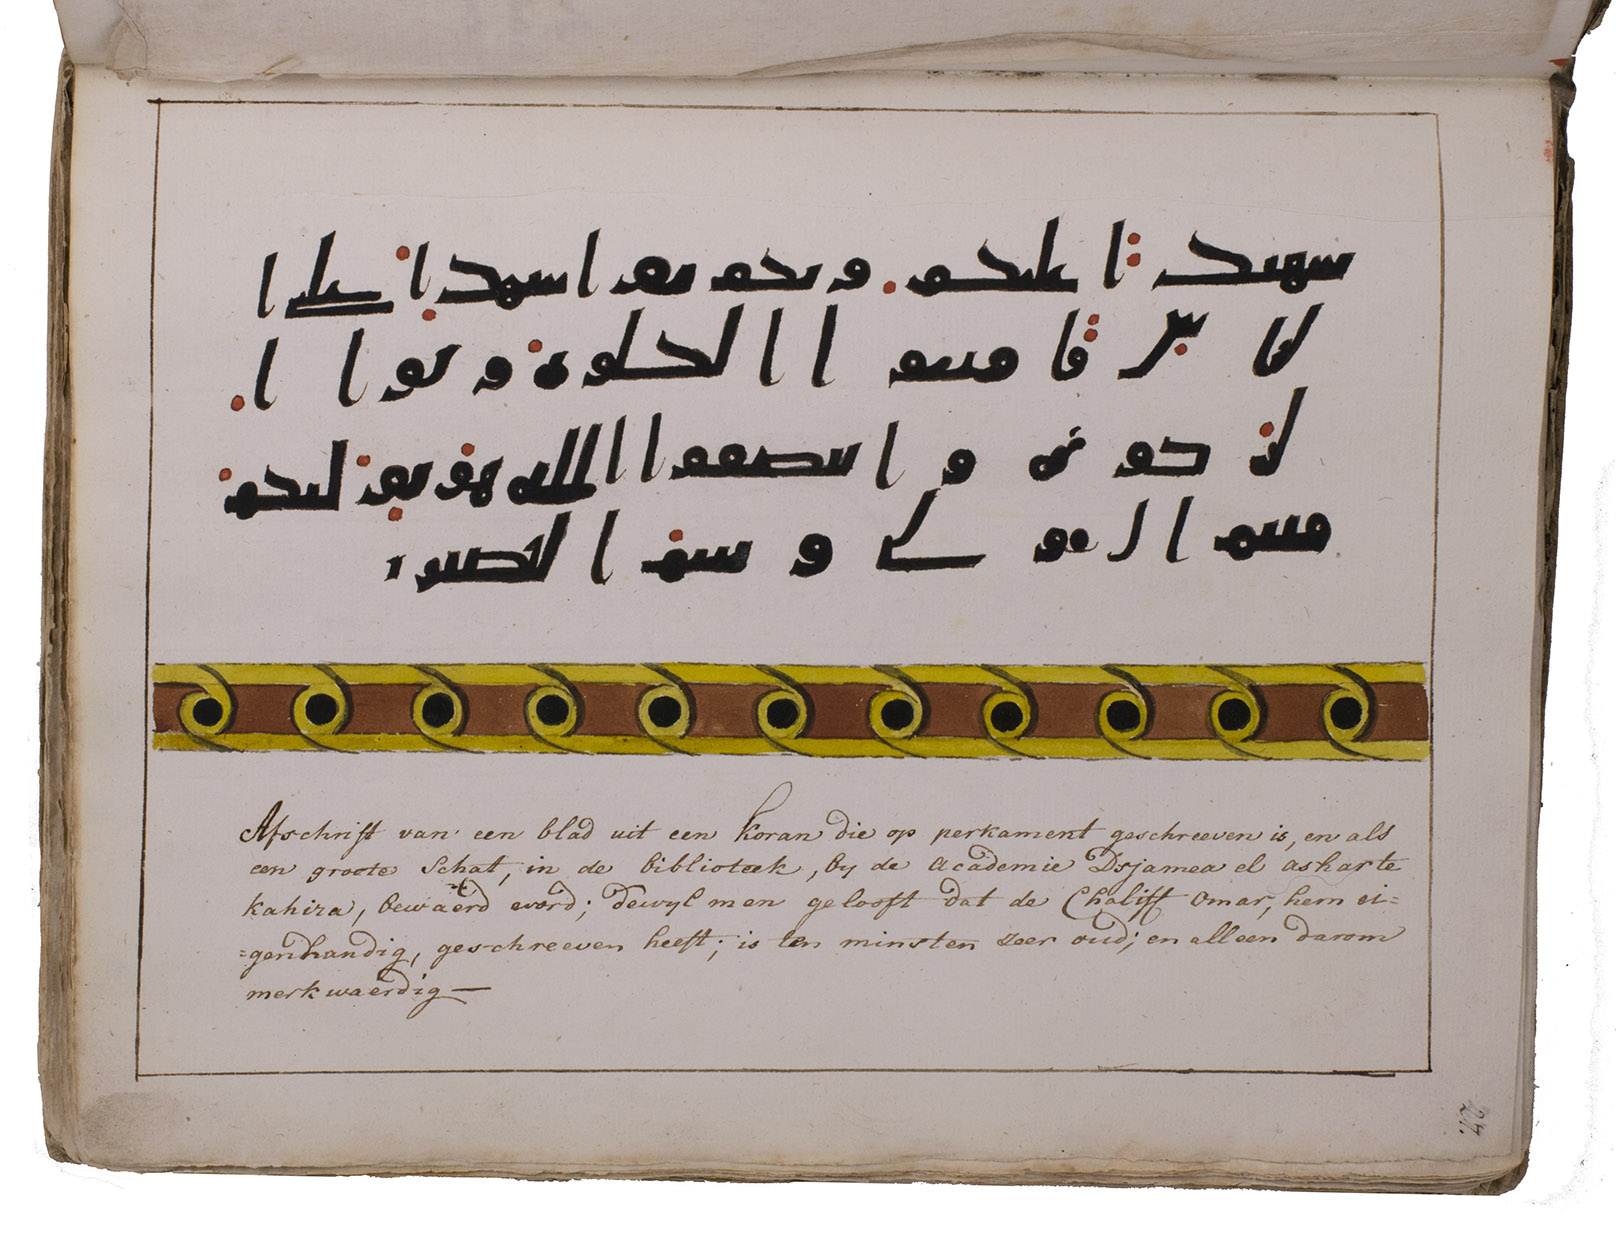 شهيدا عليكم وتكونوا شهدا على ا
لناس فاقيموا الصلوة واتوا ا
لزكوة واعتصموا بالله هو موليكم
فنعم المولى ونعم النصير
Afschrift van een blad uit een Koran die op perkament geschreeven is, en als
een groote Schat, in de biblioteek, by de Academie Dsjamea el ashar te
kahira, bewaerd word; dewyl men gelooft dat de Chaliff Omar, hem ei=
=genhandig, geschreeven heeft; is ten minsten zeer oud; en alleen darom
merkwaerdig —
22.